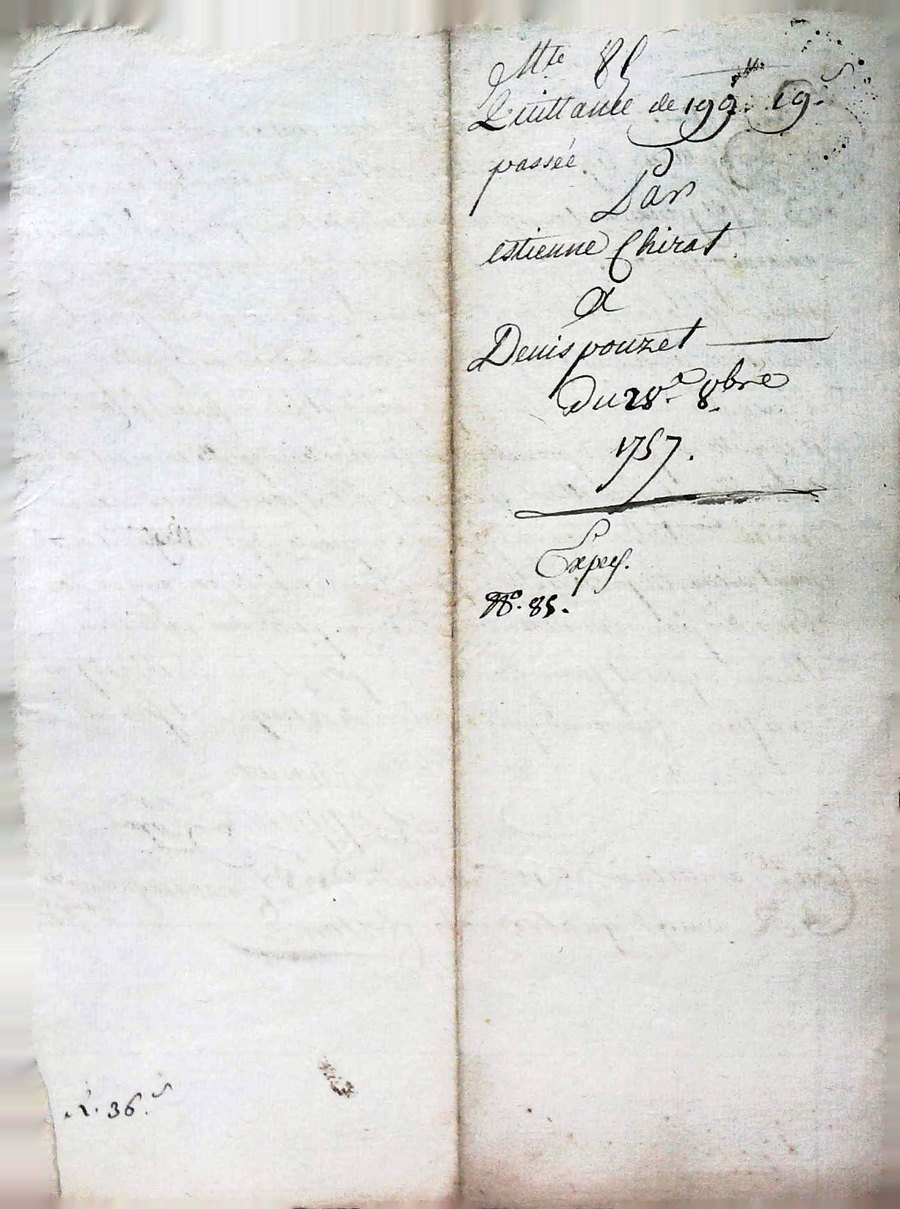 Mte 85
Quittance de 199.tt 19.s
passée
Par
estienne Chirat
A
Denis pouzet
Du 28.e 8.bre
1757.
Expey.
No. 85.
R. 36.s